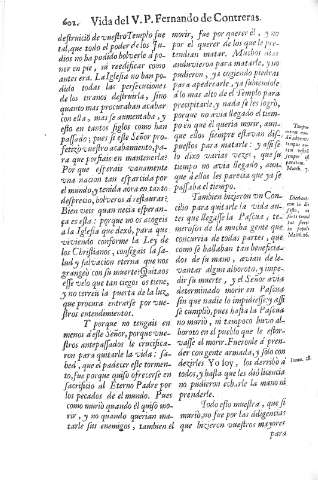 602. Vida del V. P. Fernando de Contreras.
destruició de vuestro Templo fue
tal, que todo el poder de los Ju-
dios no ha podido bolverlo à po-
ner en pie, ni reedificar como
antes era. La Iglesia no han po-
dido todas las persecuciones
de los tiranos destruirla, sino
quanto mas procuraban acabar
con ella, mas se aumentaba, y
esto en tantos siglos como han
passado; pues si este Señor pro-
fetizò vuestro acabamiento, pa-
ra que porfiais en manteneros?
Por què esperais vanamente
una nacion tan esparcida por
el mundo, y tenida aora en tanto
desprecio, bolveros à restaurar?
Bien veis quan necia esperan-
ça es essa: porque no os acogeis
à la Iglesia que dexò, para que
viviendo conforme la Ley de
los Christianos, consigais la sa-
lud y salvacion eterna que nos
grangeò con su muerte? Quitaos
esse velo que tan ciegos os tiene,
y no cerreis la puerta de la luz,
que procura entrarse por vues-
tros entendimientos.
T porque no tengais en
menos à este Señor, porque vues-
tros antepassados le crucifica-
ron para quitarle la vida: sa-
bed, que el padecer este tormen-
to, fue porque quiso ofrecerse en
sacrificio al Eterno Padre por
los pecados de el mundo. Pues
como muriò quando èl quiso mo-
rir, y quando no querian ma-
tarle sus enemigos, tambien el
morir, fue por querer èl, y no
por el querer de los que le pre-
tendian matar. Muchos dias
anduvieron para matarle, y no
pudieron, ya cogiendo piedras
para apedrearle, ya subiendole
à lo mas alto de el Templo para
precipitarle, y nada se les logrò,
porque no avia llegado el tiem-
po en que èl querìa morir, aun-
que ellos siempre estavan dis-
puestos para matarle: y assi se
lo dixo varias vezes, que su
tiempo no avia llegado, aun-
que à ellos les parecia que yà se
passaba el tiempo.
Tambien hizieron un Con-
cilio para quitarle la vida an-
tes que llegasse la Pascua, te-
merosos de la mucha gente que
concurria de todas partes, que
como se hallaban tan beneficia-
dos de su mano, avian de le-
vantar algun alboroto, y impe-
dir su muerte, y el Señor avia
determinado morir en Pascua
sin que nadie lo impidiesse, y assi
se cumpliò, pues hasta la Pascua
no muriò, ni tampoco huvo al-
boroto en el pueblo que le estor-
vasse el morir. Fueronle à pren-
der con gente armada, y sólo con
dezirles Yo soy, los derribò à
todos, y hasta que les diò licencia
no pudieron echarle la mano ni
prenderle.
Todo esto muestra, que si
muriò, no fue por las diligencias
que hizieron vuestros mayores
para